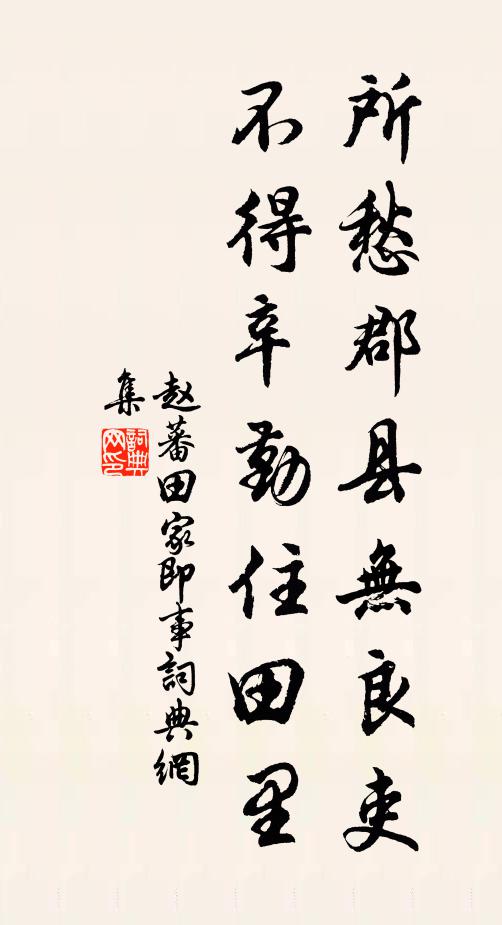 所愁郡县無良吏
不得辛勤住田里
赵蕃田家即事詞典網
集
詞典
网印